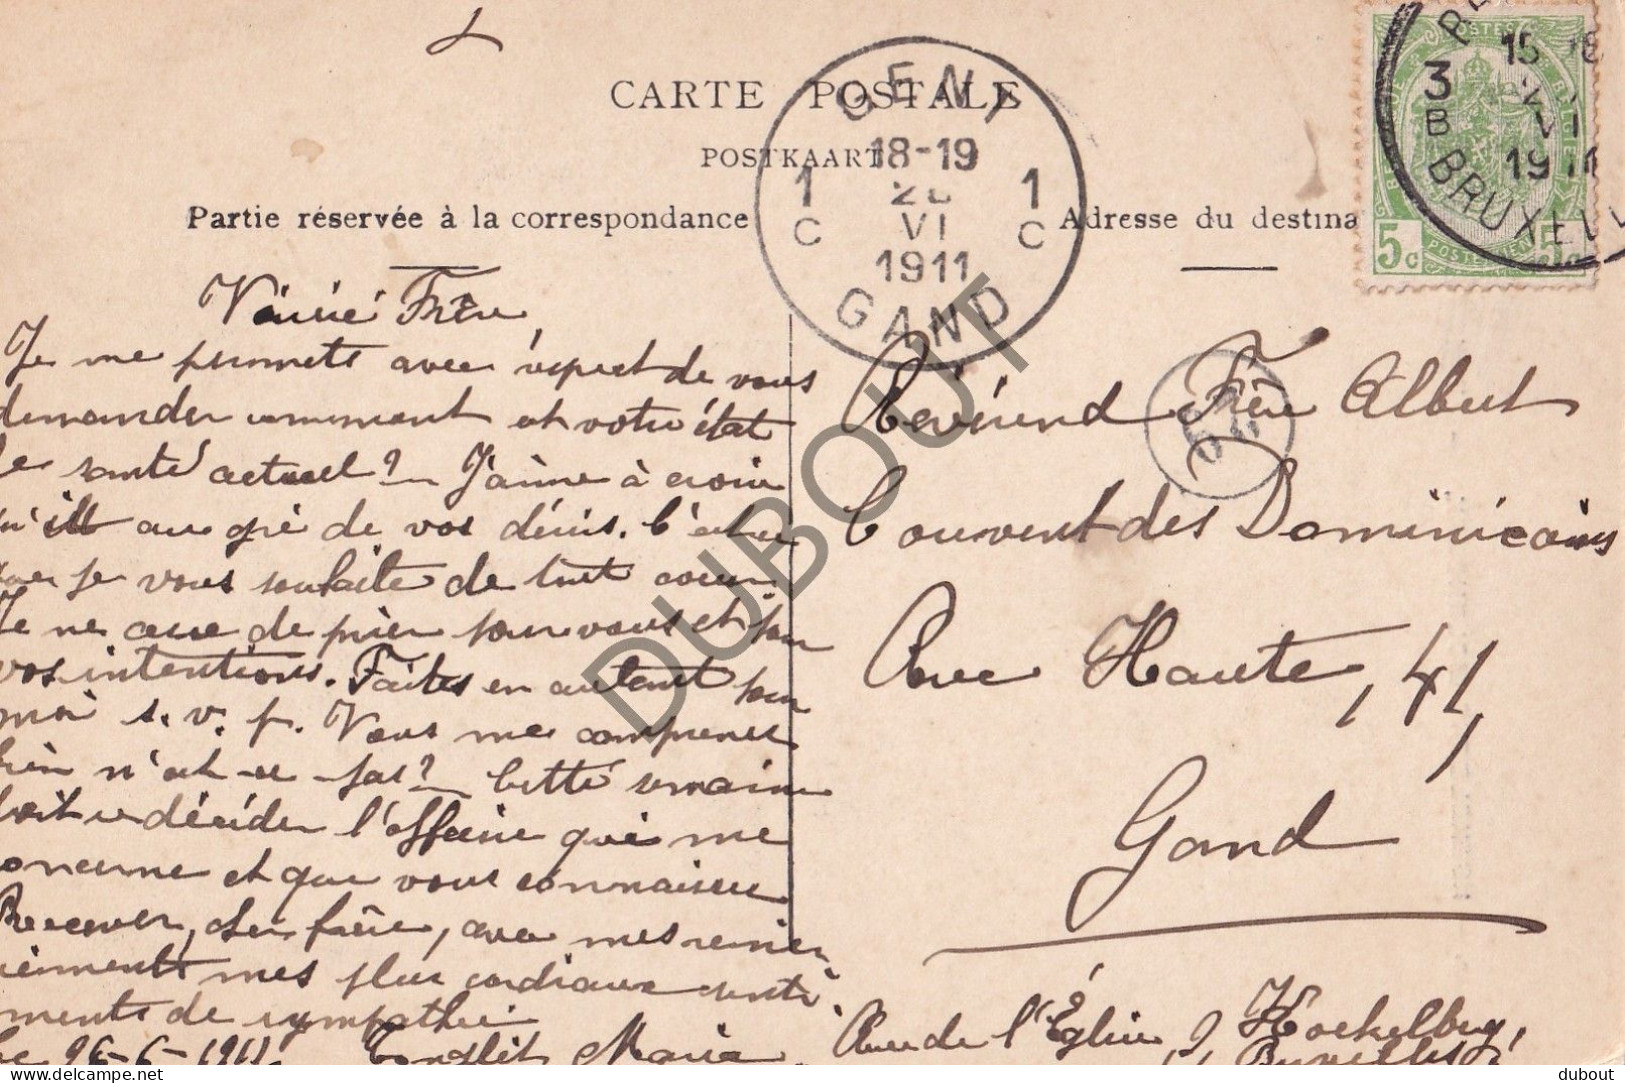 CARTE POSTALE
POSTKAART
Partie réservée à la correspondance
Adresse du destina
GENT
18-19
1 1
C VI C
1911
GAND
15
3
B VI
1911
BRUXELL
POSTES
5c 5c
POSTERIJEN
Vénéré Frère,
Je me permets avec respect de vous
demander comment est votre état
de santé actuel? J'aime à croire
qu'ill au gré de vos désirs. C'est ce
que je vous souhaite de tout coeur.
Je ne cesse de prier pour vous et pour
vos intentions. Faites en autant pour
moi s. v. p. Vous me comprenez
bien n'est-ce pas? Cette semaine
doit se décider l'affaire qui me
concerne et que vous connaissez
Recevez, cher frère, avec mes remer-
ciements mes plus cordiaux senti-
ments de sympathie
26-6-1911. Maria
Révérend Frère Albert
Couvent des Dominicains
Rue Haute, 41,
Gand
Rue de l'Église, 9, Koekelberg,
Bruxelles
DUBOUT
delcampe.net
dubout